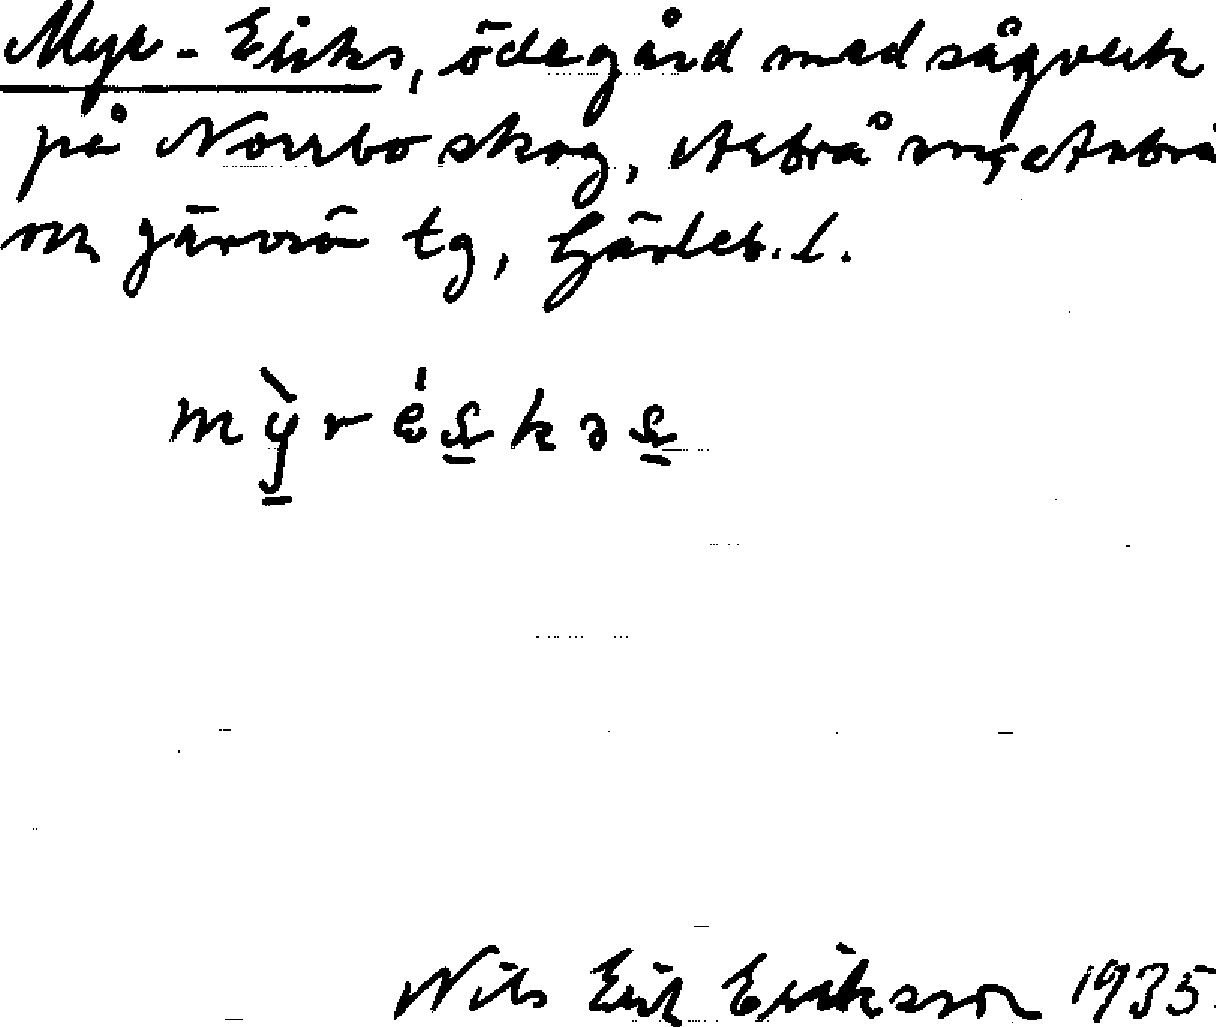 Myr-Eriks, ödegård med sågverk
på Norrbo skog, Arbrå sn, Arbrå
och Järvsö tg, Gävleb. l.
mỳrésˌkəs
Nils Erik Eriksson 1935.